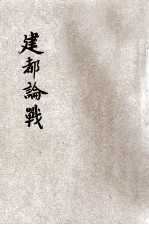 建都論戰